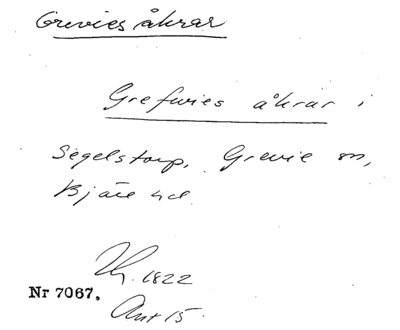 Grevies åkrar
Grefwies åkrar i
Segelstorp, Grevie sn,
Bjäre hd.
1822
Nr 7067.
Akt 15.